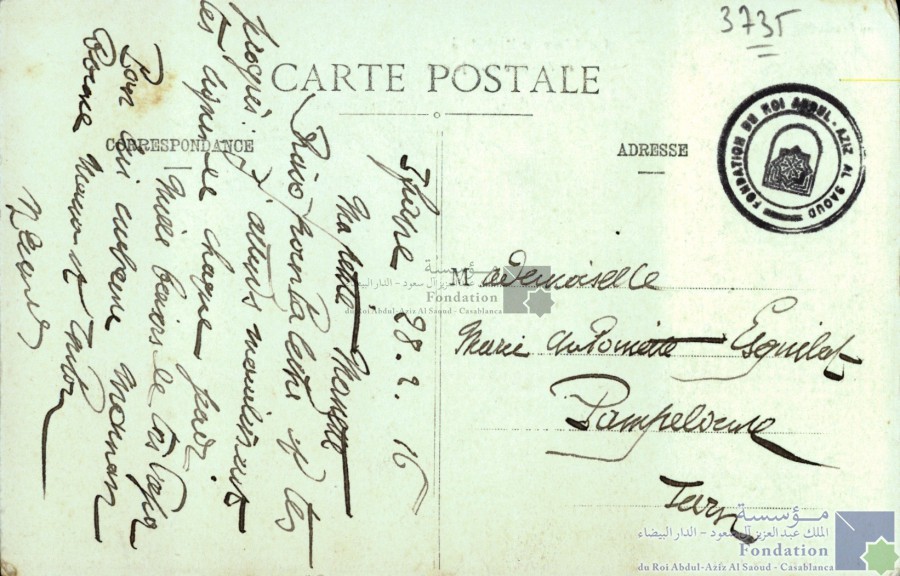 3735
CARTE POSTALE
CORRESPONDANCE
ADRESSE
FONDATION DU ROI ABDUL-AZIZ AL SAOUD
28. 2. 16
Ma petite Manette
Bravo pour ta lettre et tes
progrès. j'attends maintenant
chaque jour
Mille baisers de ton Papa
Bonne Mama et
Mademoiselle
Marie Antoinette Esquilat
Pampelonne
Tarn
مؤسسة
الملك عبد العزيز آل سعود - الدار البيضاء
Fondation
du Roi Abdul-Aziz Al Saoud - Casablanca
مؤسسة
الملك عبد العزيز آل سعود - الدار البيضاء
Fondation
du Roi Abdul-Aziz Al Saoud - Casablanca